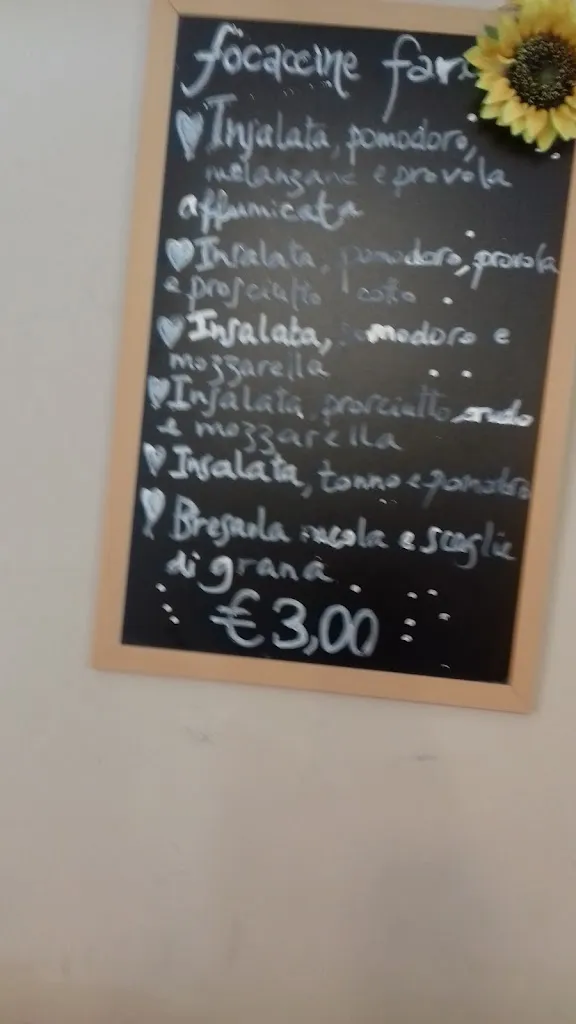 focaccine
Insalata, pomodoro,
melanzane e provola
affumicata
Insalata, pomodoro, provola
e prosciutto cotto
Insalata, pomodoro e
mozzarella
Insalata, prosciutto crudo
e mozzarella
Insalata, tonno e pomodoro
Bresaola rucola e scaglie
di grana
€ 3,00